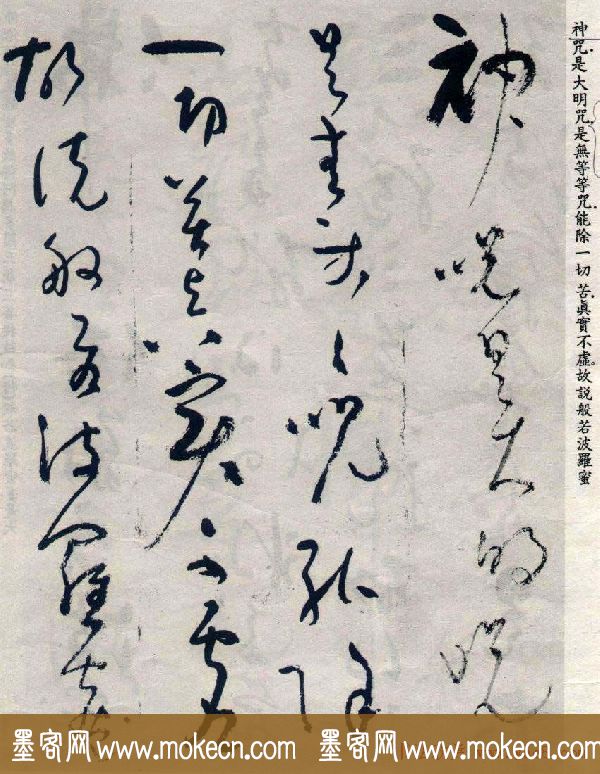 神咒是大明咒是無等等咒能除一切苦真實不虛故説般若波羅蜜
神咒是大明咒
是無等等咒能除
一切苦真實不虛
故説般若波羅蜜
墨客网 www.mokecn.com 墨客网 www.mokecn.com